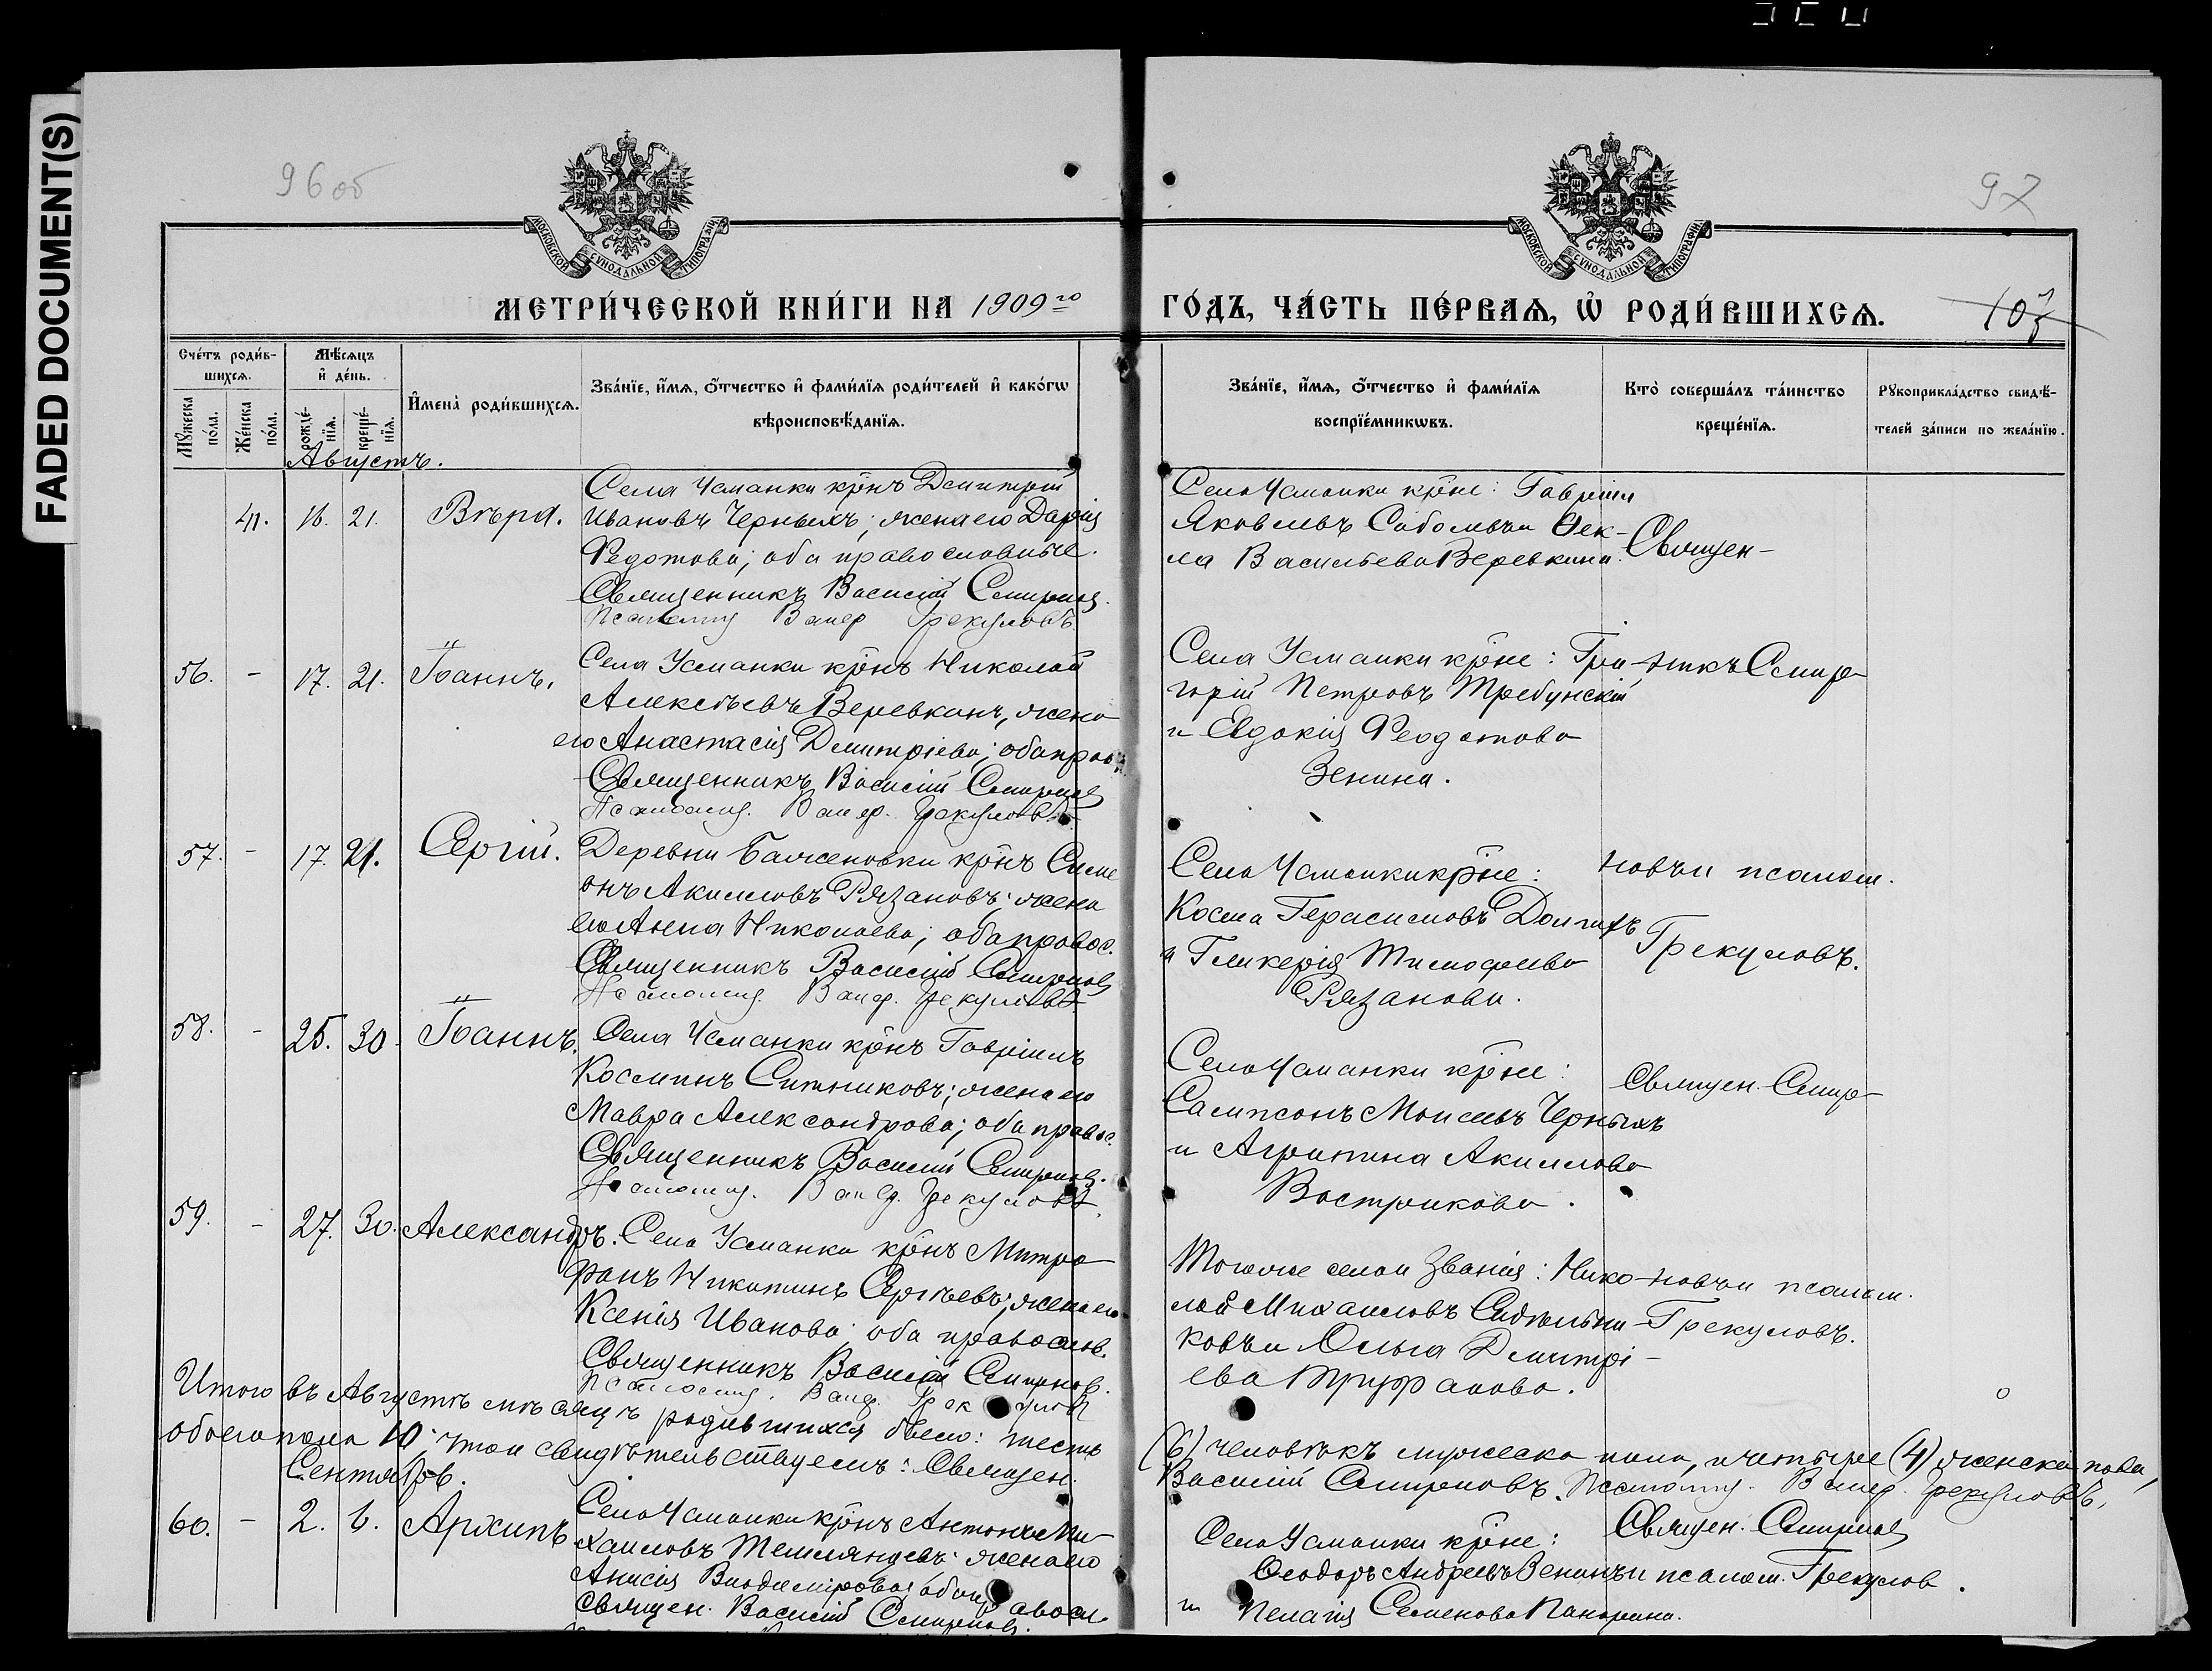 FADED DOCUMENT(S)
96 об
97
МОСКОВСКОЙ СѴНОДАЛЬНОЙ ТИПОГРАФІИ
МОСКОВСКОЙ СѴНОДАЛЬНОЙ ТИПОГРАФІИ
МЕТРИ́ЧЕСКОЙ КНИ́ГИ НА 1909 го
ГО́ДЪ, ЧА́СТЬ ПЕ́РВАѦ, Ѡ РОДИ́ВШИХСѦ.
Сче́тъ роди́в-
шихсѧ.
Мꙋ́жеска по́ла.
Же́нска по́ла.
Мѣ́сѧцъ
и҆ де́нь.
рожде́-нїѧ.
креще́-нїѧ.
И҆мена̀ роди́вшихсѧ.
Зва́нїе, и҆́мѧ, ѻ҆́тчество и҆ фами́лїѧ роди́телей и҆ како́гѡ
вѣроисповѣ́данїѧ.
Зва́нїе, и҆́мѧ, ѻ҆́тчество и҆ фами́лїѧ
воспрїе́мникѡвъ.
Кто̀ соверша́лъ та́инство
креще́нїѧ.
Рꙋкоприкла́дство свидѣ́-
телей за́писи по жела́нїю.
Августъ.
41. 16. 21. Вѣра.
Села Усманки крнъ Димитрій
Ивановъ Черныхъ; жена его Дарія
Федотова; оба православные.
Священникъ Василій Смирновъ.
Псаломщ Грекуловъ
Села Усманки крне: Гавріилъ
Яковлевъ Соболевъ и Ѳек-
ла Васильева Веревкина.
Священ-
56. - 17. 21. Іоаннъ.
Села Усманки крнъ Николай
Алексѣевъ Веревкинъ, жена
его Анастасія Димитріева; оба прав
Священникъ Василій Смирновъ
Псаломщ. Грекуловъ
Села Усманки крне: Гри-
горій Петровъ Требунскій
и Евдокія Феодотова
Зенина.
никъ Смир-
57. - 17. 21. Сергій.
Деревни крнъ Симе
онъ Акимовъ Рязановъ; жена
его Анна Николаева; оба правос.
Священникъ Василій Смирновъ
Псаломщ. Грекуловъ
Села Усманки крне:
Косма Герасимовъ Долгихъ
и Гликерія Тимофеева
Рязанова.
новъ и псалом.
Грекуловъ.
58. - 25. 30. Іоаннъ.
Села Усманки крнъ Гавріилъ
Косминъ Ситниковъ; жена его
Мавра Александрова; оба правос.
Священникъ Василій Смирновъ.
Псаломщ. Грекуловъ
Села Усманки крне:
Сампсонъ Моисеевъ Черныхъ
и Агрипина Акимова
Вострикова.
Священ. Смир-
59. - 27. 30. Александръ.
Села Усманки крнъ Митро
фанъ Никитинъ Сергѣевъ; жена его
Ксенія Иванова; оба правосл.
Священникъ Василій Смирнов.
Псаломщ. Грекулов
Того же села и званія: Нико-
лай Михаиловъ Сидельни-
ковъ и Ольга Димитрі-
ева Труфанова.
новъ и псалом.
Грекуловъ.
Итого въ Августѣ мѣсяцѣ родившихся было: шесть
(6) человѣкъ мужеска пола, и четыре (4) женска пола,
обоего пола 10; что и свидѣтельствуемъ: Священ.
Василій Смирновъ. Псаломщ. Грекуловъ.
Сентябрь.
60. - 2. 6. Архипъ
Села Усманки крнъ Антонъ Ми-
хаиловъ жена его
Анисія Владимірова; оба правосл.
Священ. Василій Смирновъ.
Села Усманки крне:
Ѳеодоръ Андреевъ Зенинъ
и Пелагія Семенова Панарина.
Священ. Смирнов
и псалом. Грекулов.